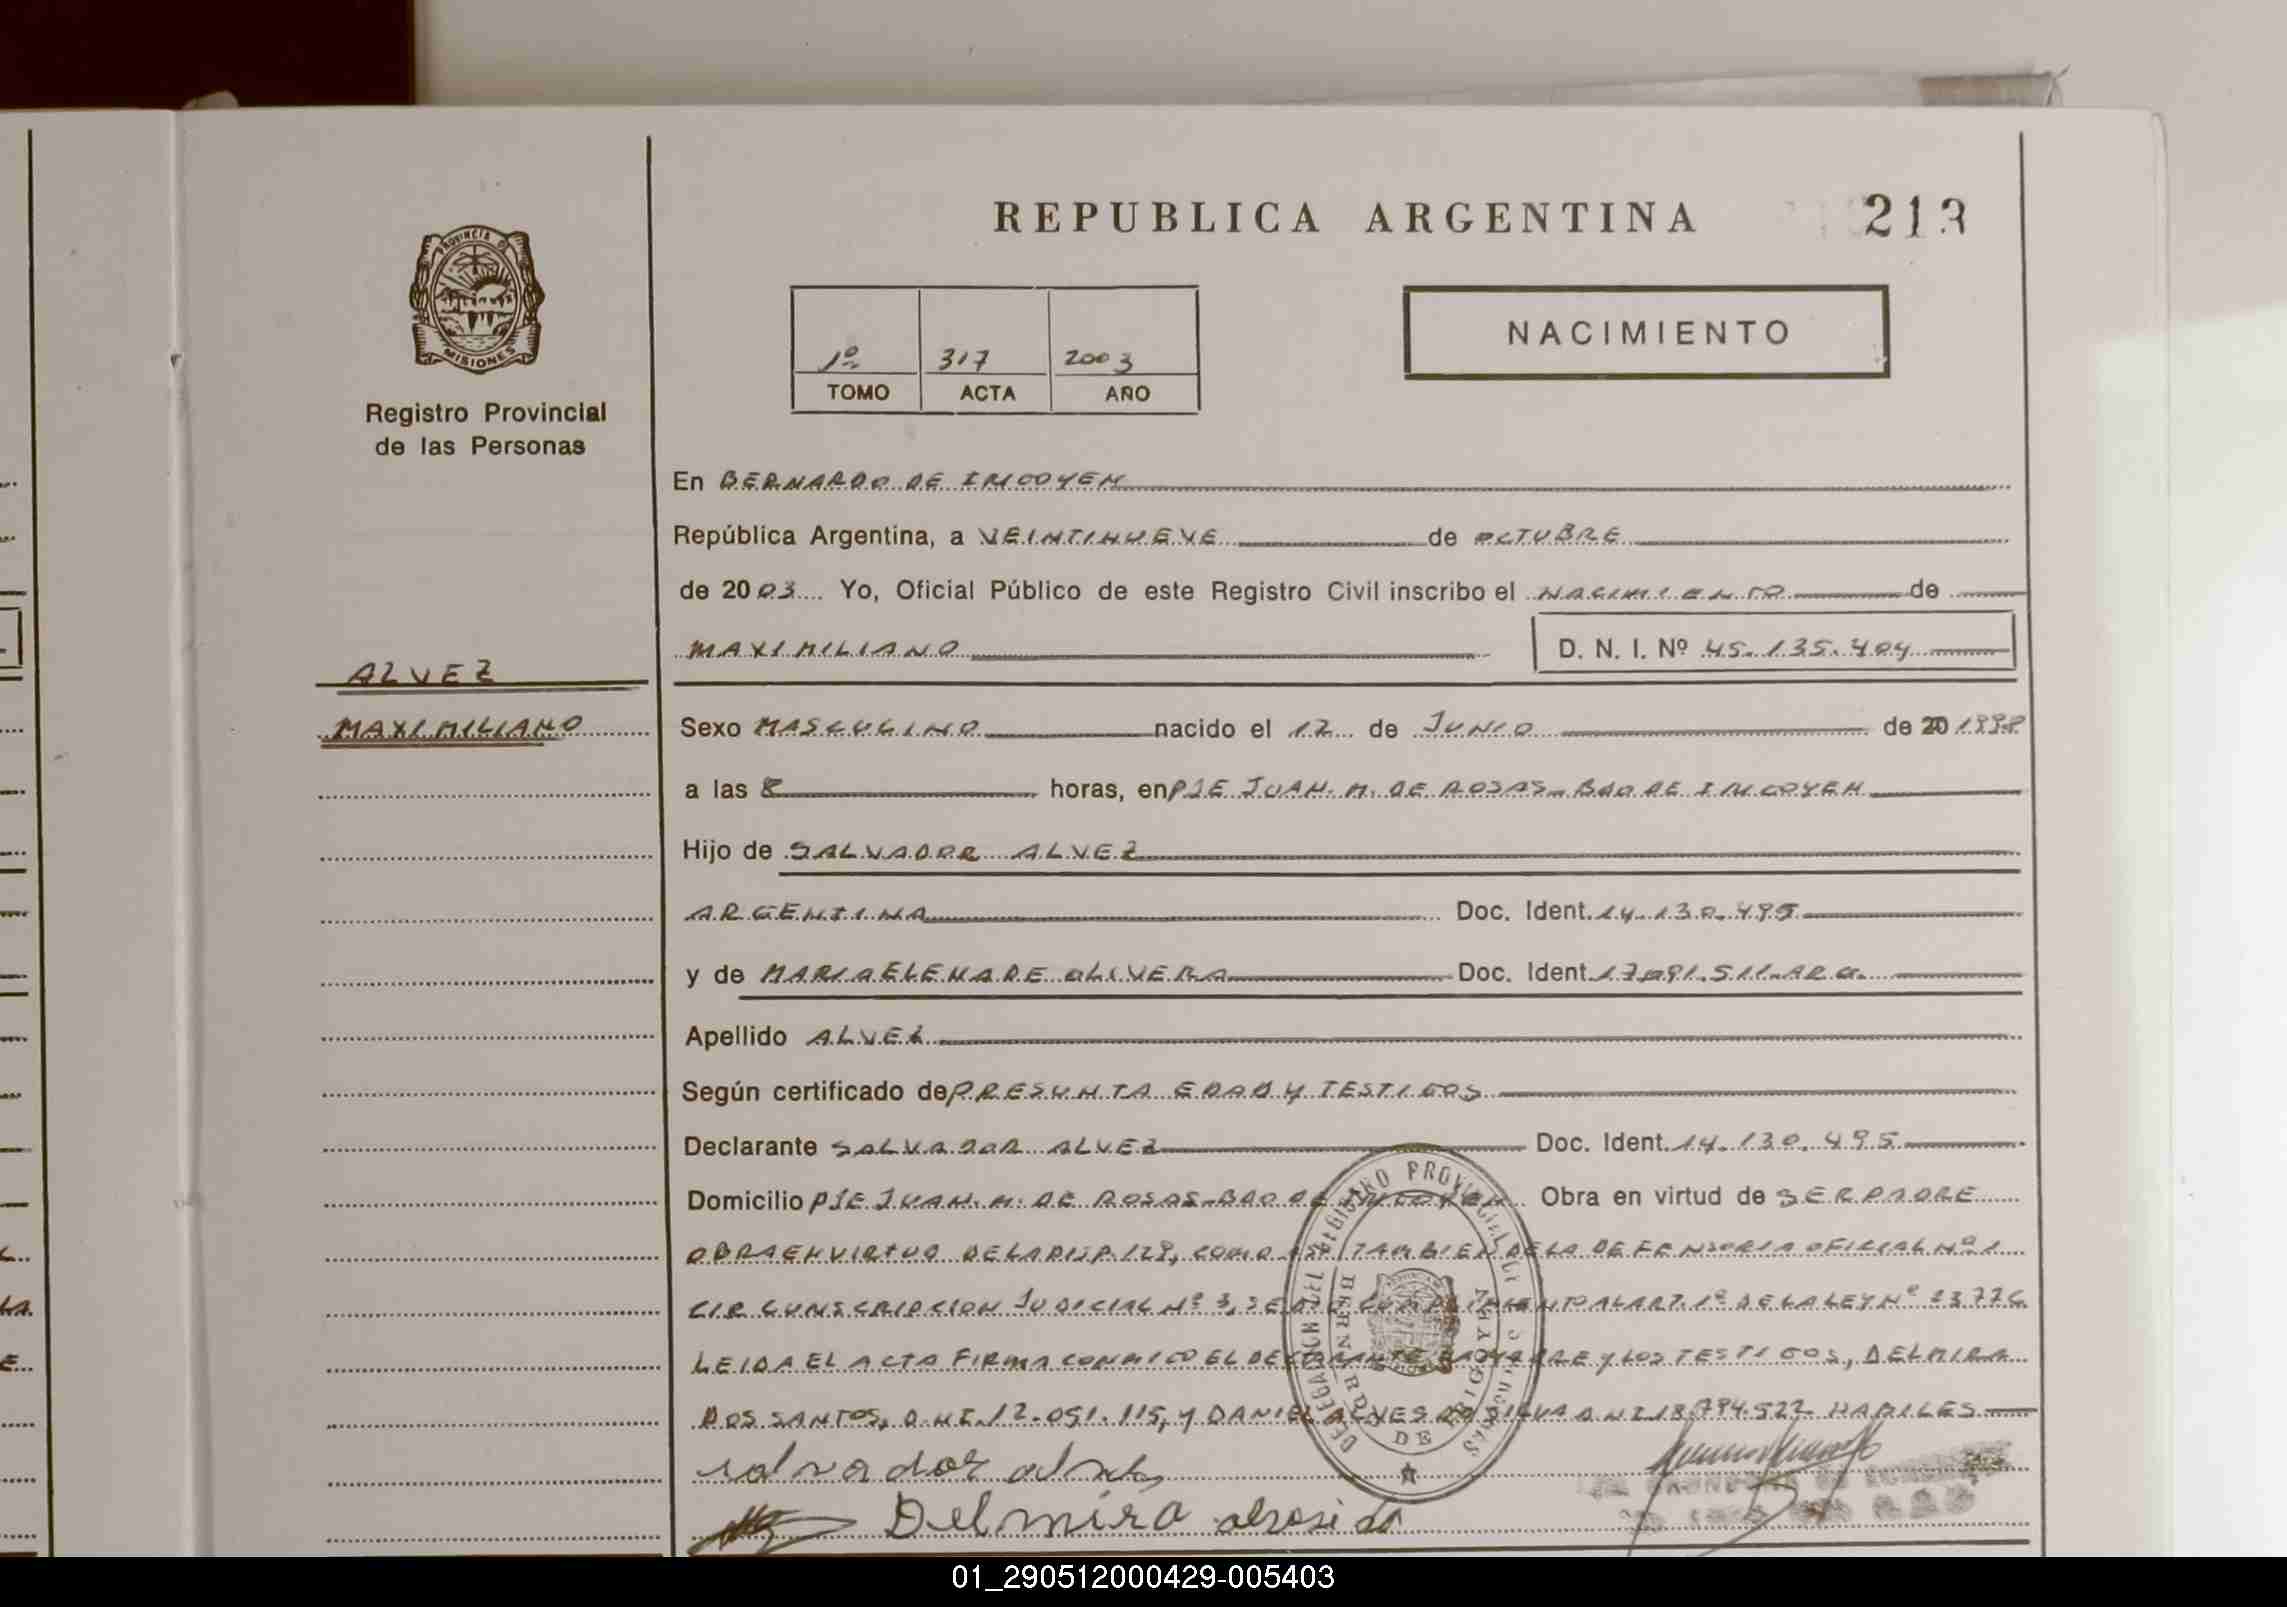 REPUBLICA ARGENTINA 213
PROVINCIA DE
MISIONES
Registro Provincial
de las Personas
NACIMIENTO
1º 317 2003
TOMO ACTA AÑO
En BERNARDO DE IRIGOYEN
República Argentina, a VEINTINUEVE de OCTUBRE
de 2003 Yo, Oficial Público de este Registro Civil inscribo el NACIMIENTO de
MAXIMILIANO D. N. I. Nº 45.135.404
ALVEZ
MAXIMILIANO
Sexo MASCULINO nacido el 12 de JUNIO de 20 1998
a las 8 horas, en PJE JUAN. M. DE ROSAS- BDO DE IRIGOYEN
Hijo de SALVADOR ALVEZ
ARGENTINA Doc. Ident. 14.130.495
y de MARIA ELENA DE OLIVERA Doc. Ident. 17.091.511-ARG.
Apellido ALVEZ
Según certificado de PRESUNTA EDAD Y TESTIGOS
Declarante SALVADOR ALVEZ Doc. Ident. 14.130.495
Domicilio PJE JUAN. M. DE ROSAS-BDO DE IRIGOYEN Obra en virtud de SER PADRE
OBRA EN VIRTUD DE LA DISP. 129, COMO ASI TAMBIEN DE LA DEFENSORIA OFICIAL Nº 1
CIRCUNSCRIPCION JUDICIAL Nº 3, SE DIO CUMPLIMIENTO AL ART. 1º DE LA LEY Nº 23776
LEIDA EL ACTA FIRMA CONMIGO EL DECLARANTE PADRE Y LOS TESTIGOS, DELMIRA
DOS SANTOS, D.N.I. 12.051.115, Y DANIEL ALVES DA SILVA DNI 18.794.522 HABILES
DELEGACION DEL REGISTRO PROVINCIAL DE LAS PERSONAS
BERNARDO DE IRIGOYEN
salvador alvez
Delmira
01_290512000429-005403